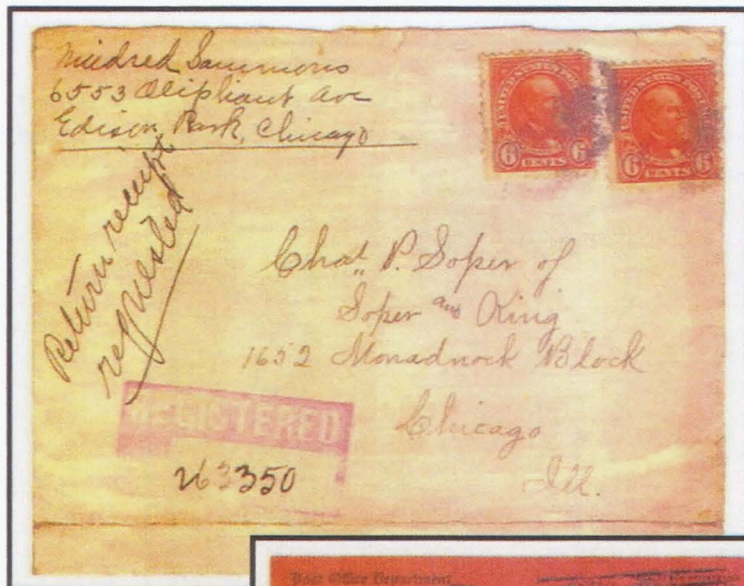 Mildred Sammons
6553 Oliphant Ave
Edison Park, Chicago
Return receipt
requested
UNITED STATES POSTAGE
6 6
CENTS
UNITED STATES POSTAGE
6 6
CENTS
Chas. P. Soper of
Soper and King
1652 Monadnock Block
Chicago
Ill.
REGISTERED
263350
Post Office Department